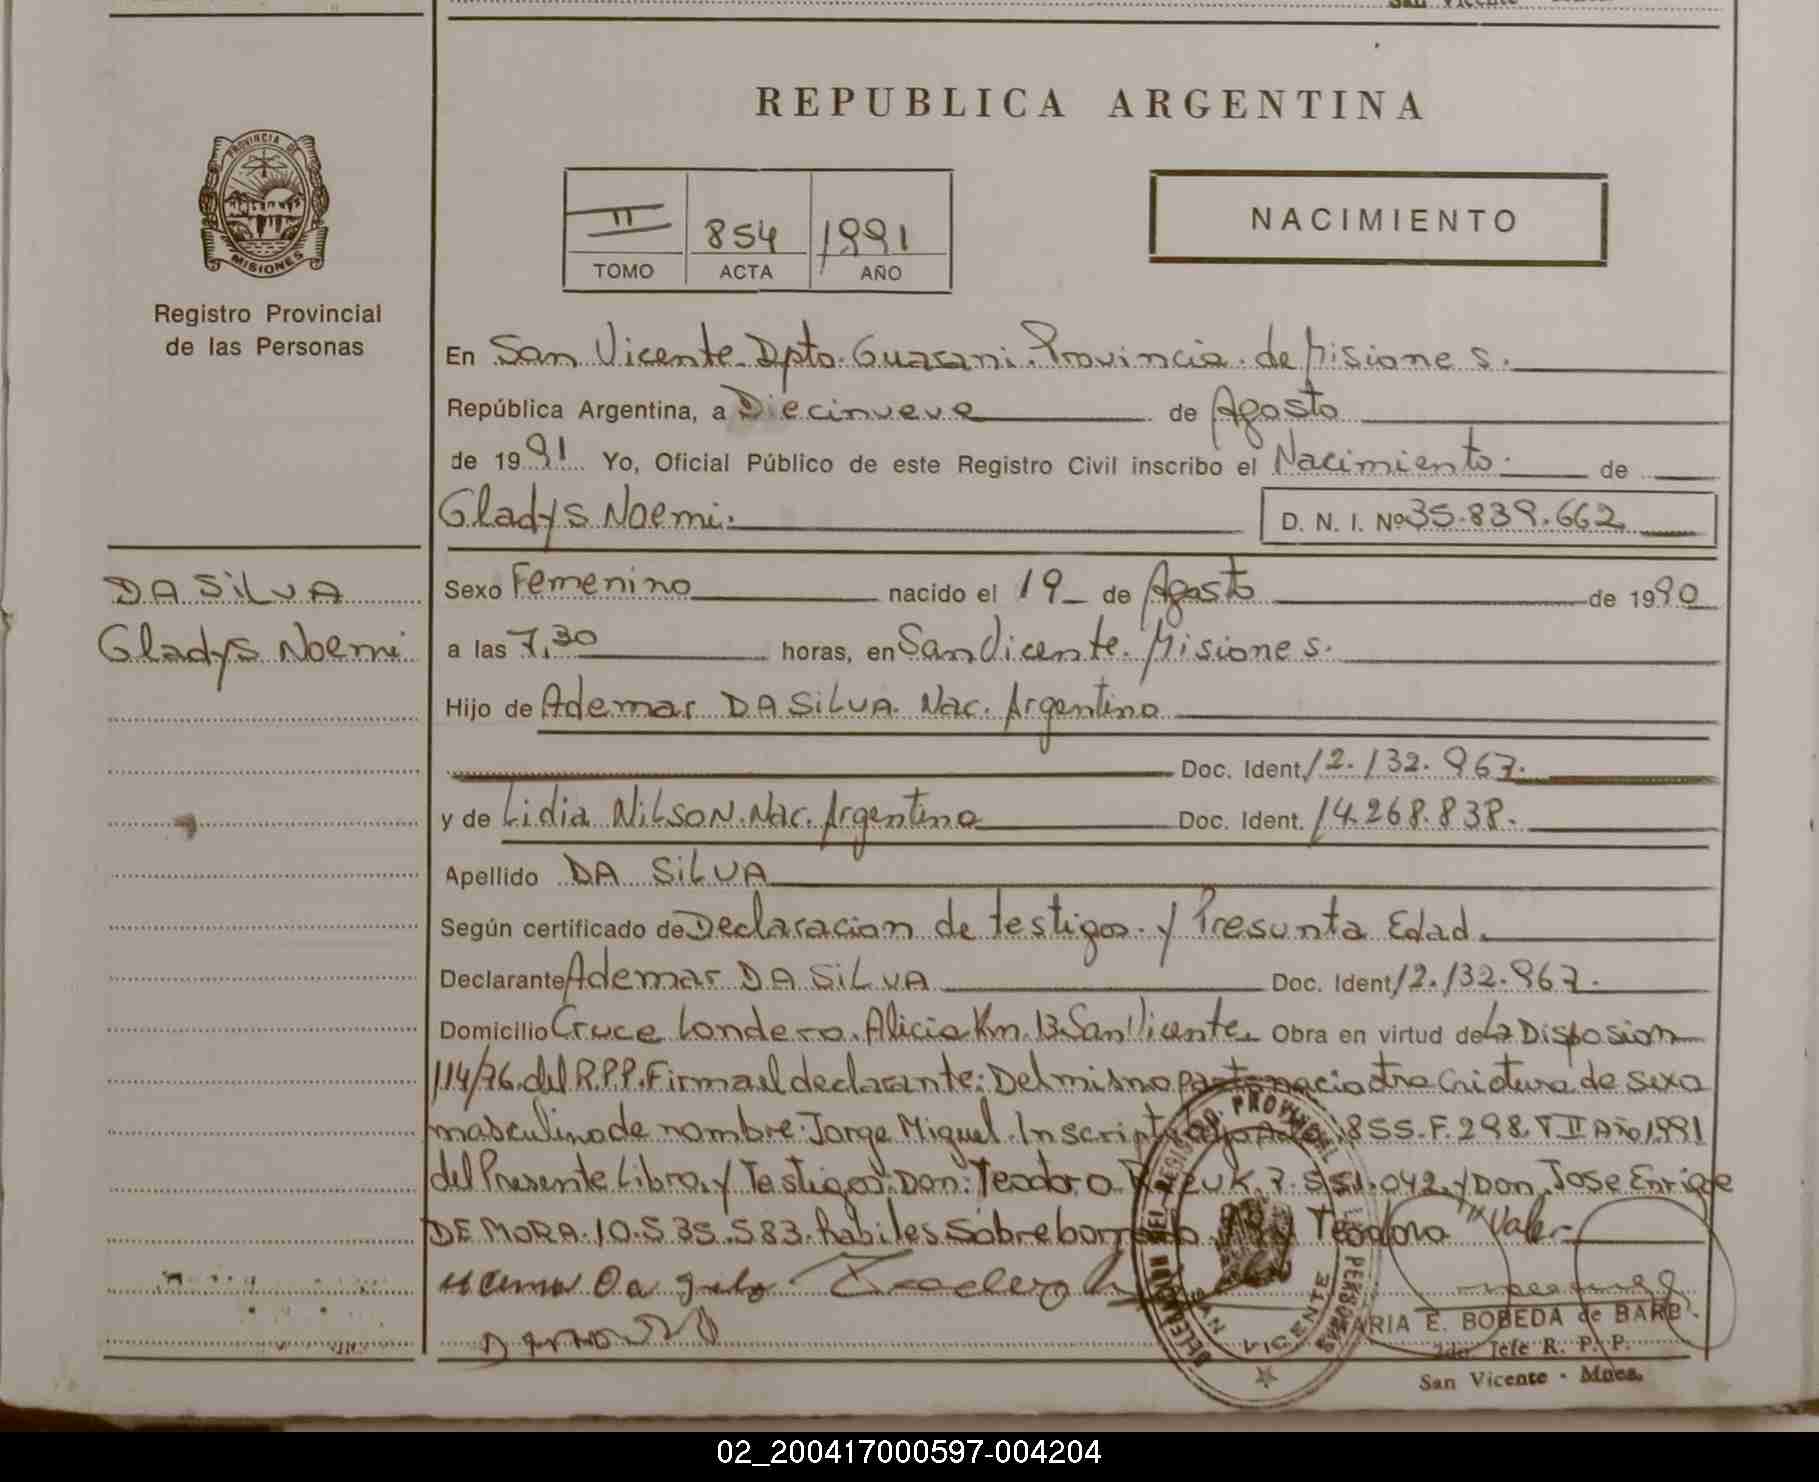 San Vicente
REPUBLICA ARGENTINA
PROVINCIA DE
MISIONES
Registro Provincial
de las Personas
II 854 1991
TOMO ACTA AÑO
NACIMIENTO
En San Vicente. Dpto. Guarani. Provincia. de Misiones.
República Argentina, a Diecinueve de Agosto
de 1991 Yo, Oficial Público de este Registro Civil inscribo el Nacimiento. de
Gladys Noemi. D. N. I. Nº 35.839.662
DA SiLVA
Gladys Noemi
Sexo Femenino nacido el 19 de Agosto de 1990
a las 7,30 horas, en San Vicente. Misiones.
Hijo de Ademar DA SiLVA. Nac. Argentino
Doc. Ident. 12.132.967.
y de Lidia NiLSON. Nac. Argentina Doc. Ident. 14.268.838.
Apellido DA SiLVA
Según certificado de Declaracion de testigos. y Presunta Edad.
Declarante Ademar DA SiLVA Doc. Ident. 12.132.967.
Domicilio Cruce Londero. Alicia Km. 13 San Vicente. Obra en virtud de La Disposion
114/76. del R.P.P. Firma el declarante: Del mismo parto nacio otra Criatura de sexo
masculino de nombre: Jorge Miguel. Inscripta bajo Acta. 855. F. 298. T II Año 1991
del Presente Libro. y Testigos: Don: Teodoro 7.551.042. y Don Jose Enriqe
DE MORA. 10.535.583. habiles Sobre borrado Teodoro "Vale.
DELEGACION DEL REGISTRO PROVINCIAL DE LAS PERSONAS
SAN VICENTE
MARIA E. BOBEDA de BARB.
Jefe R. P. P.
San Vicente - Mnes.
02_200417000597-004204